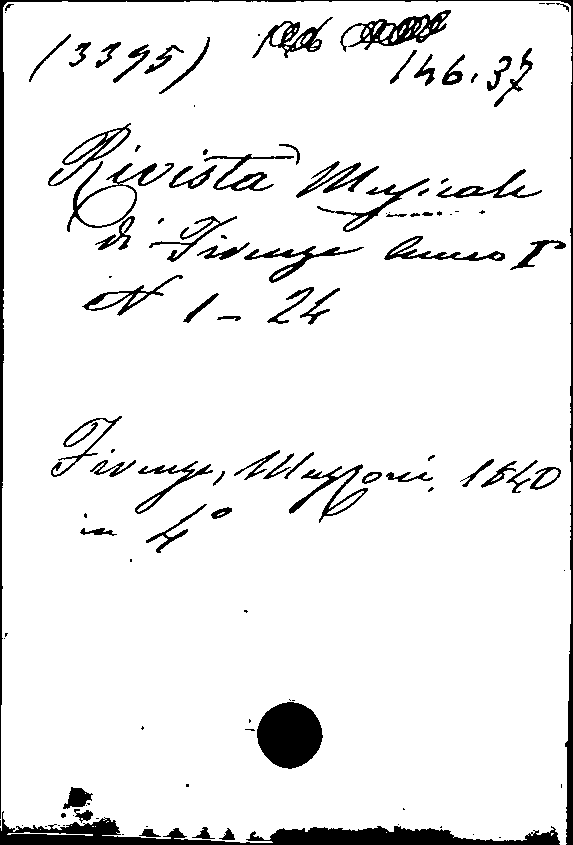 (3395)
146.37
Rivista Musicale
di Firenze Anno I°
N 1 - 24
Firenze, Mazzoni, 1840
in 4°